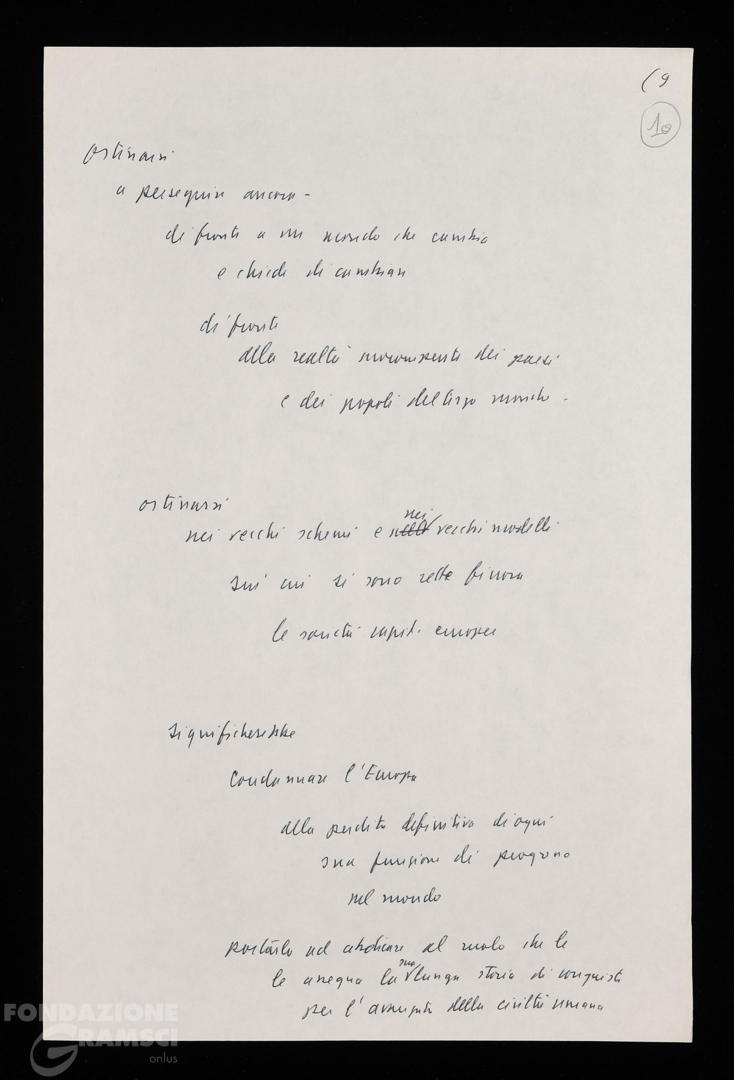 (9
10
ostinarsi
a perseguire ancora -
di fronte a un mondo che cambia
e chiede di cambiare
di fronte
alla realtà incrompente dei paesi
e dei popoli del terzo mondo -
ostinarsi
nei vecchi schemi e nei vecchi modelli
su cui si sono rette finora
le società capit. europee
significherebbe
condannare l'Europa
alla perdita definitiva di ogni
sua funzione di progresso
nel mondo
portarla ad abdicare al ruolo che le
le assegna la sua lunga storia di conquiste
per l'avanzata della civiltà umana
FONDAZIONE
GRAMSCI
onlus